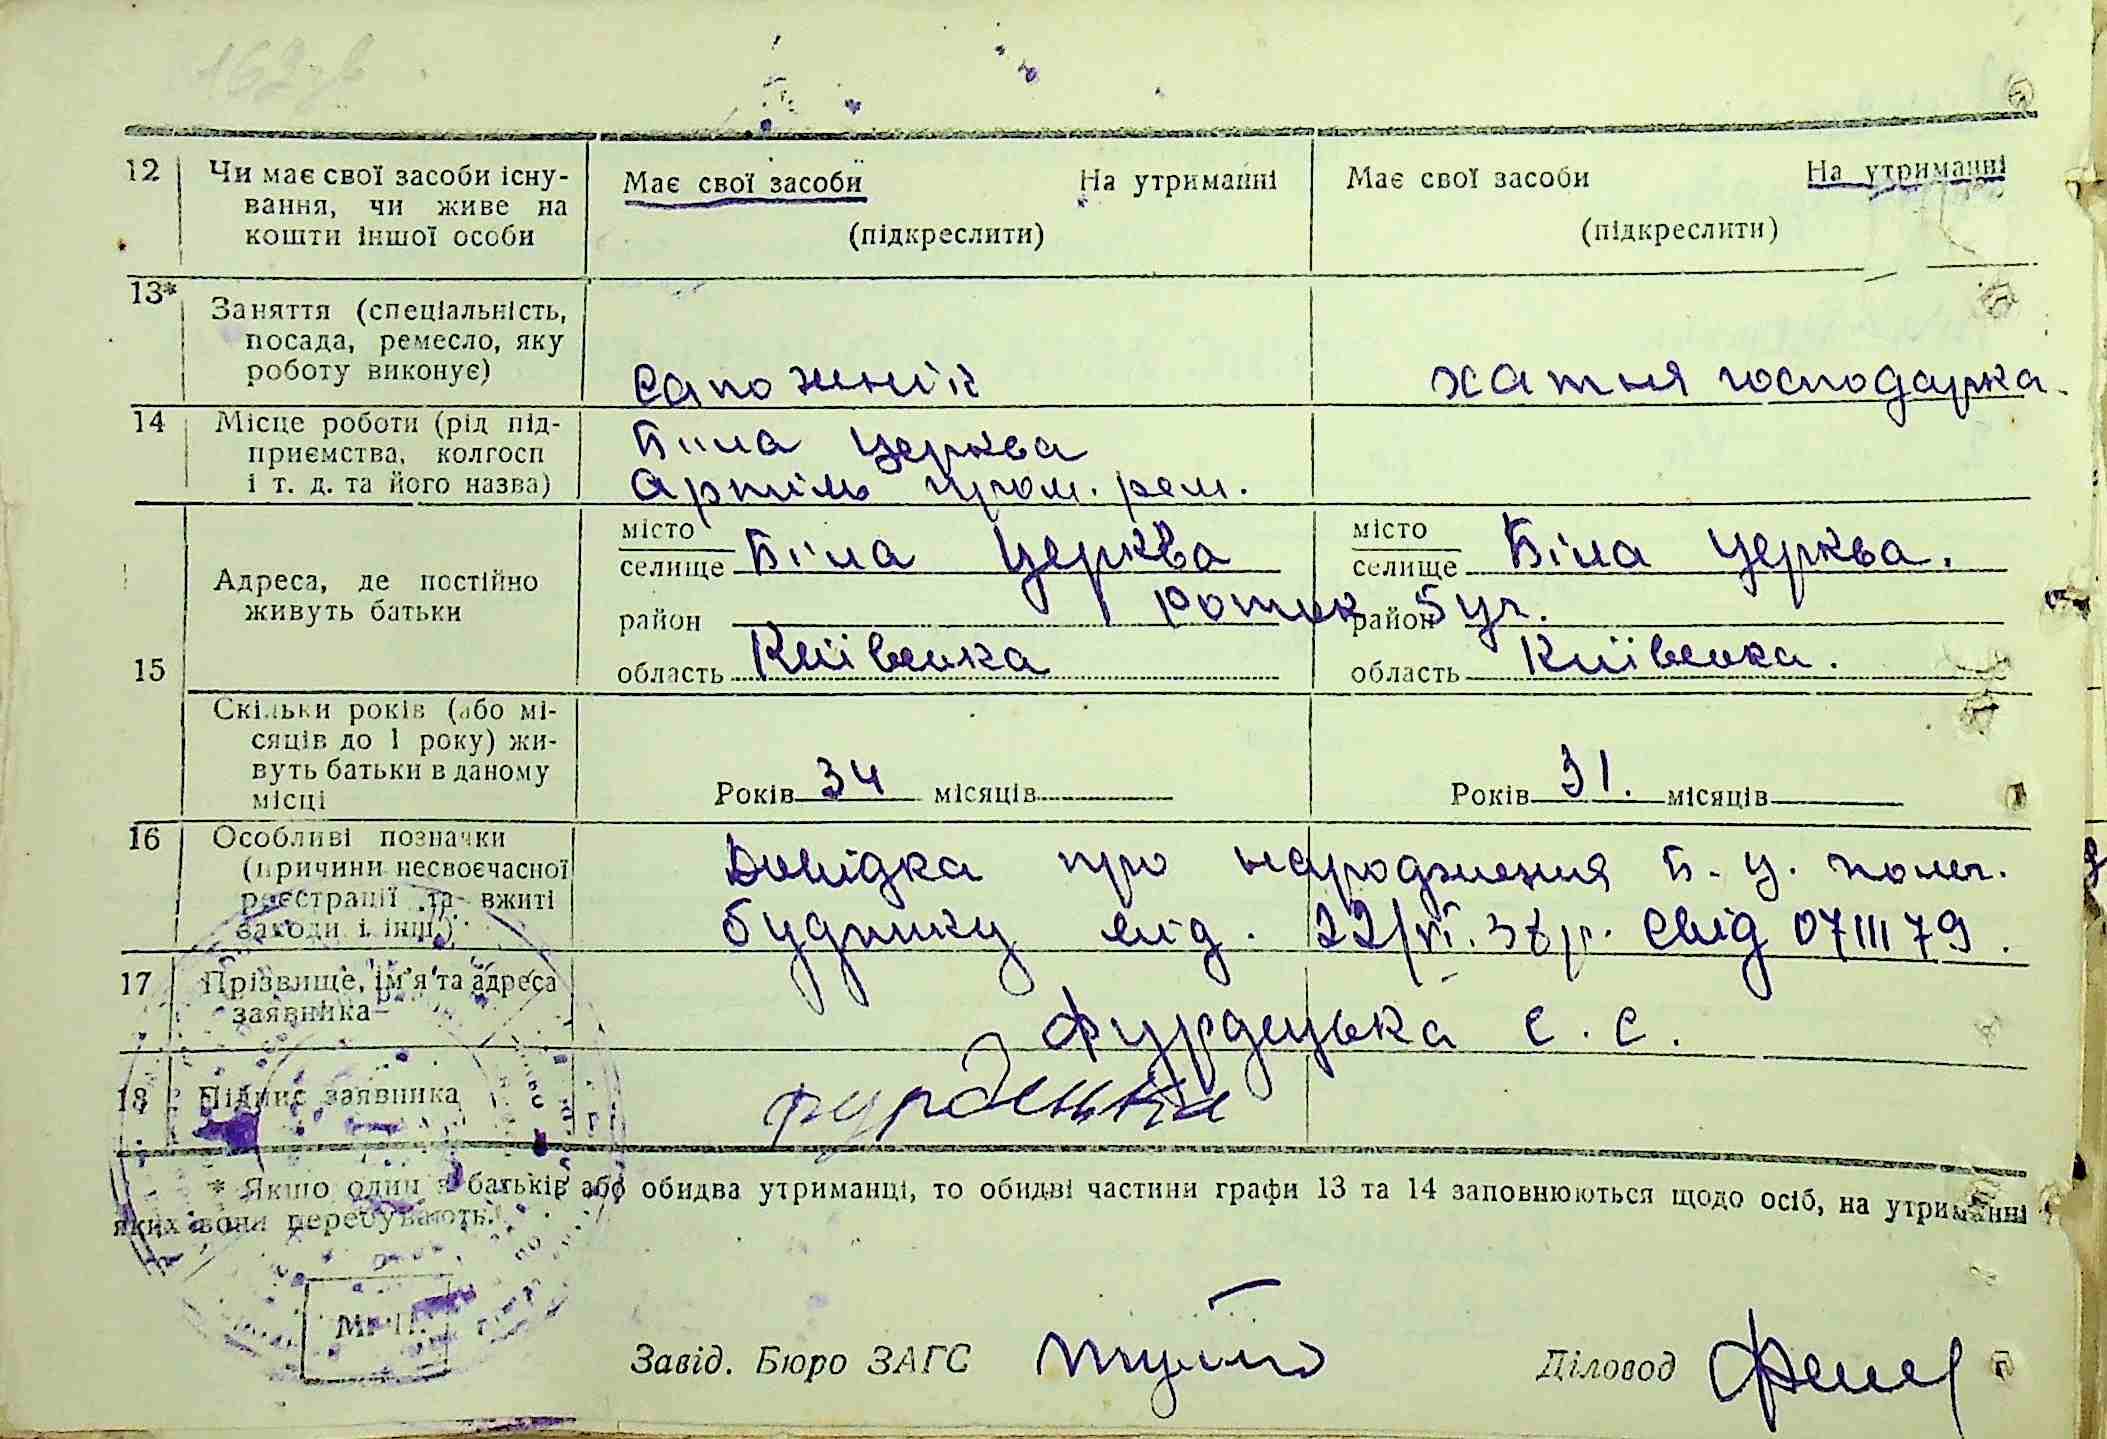 12 Чи має свої засоби існу-
вання, чи живе на
кошти іншої особи
Має свої засоби На утриманні
(підкреслити)
Має свої засоби На утриманні
(підкреслити)
13* Заняття (спеціальність,
посада, ремесло, яку
роботу виконує)
сапожник
хатня господарка.
14 Місце роботи (рід під-
приємства, колгосп
і т. д. та його назва)
Біла Церква
Артіль пром. рем.
15 Адреса, де постійно
живуть батьки
місто
селище Біла Церква
район
область Київська
місто
селище Біла Церква.
район
область Київська.
Скільки років (або мі-
сяців до 1 року) жи-
вуть батьки в даному
місці
Років 34 місяців
Років 31. місяців
16 Особливі позначки
(причини несвоєчасної
реєстрації та вжиті
заходи і інш.)
Довідка про народження Б. Ц. полог.
будинку від. 22/VI. р. Свід 07111179.
17 Прізвище, ім'я та адреса
заявника
Фурдецька Є. С.
18 Підпис заявника
* Якщо один з батьків або обидва утриманці, то обидві частини графи 13 та 14 заповнюються щодо осіб, на утриманні
яких вони перебувають.
М. П.
Завід. Бюро ЗАГС
Діловод